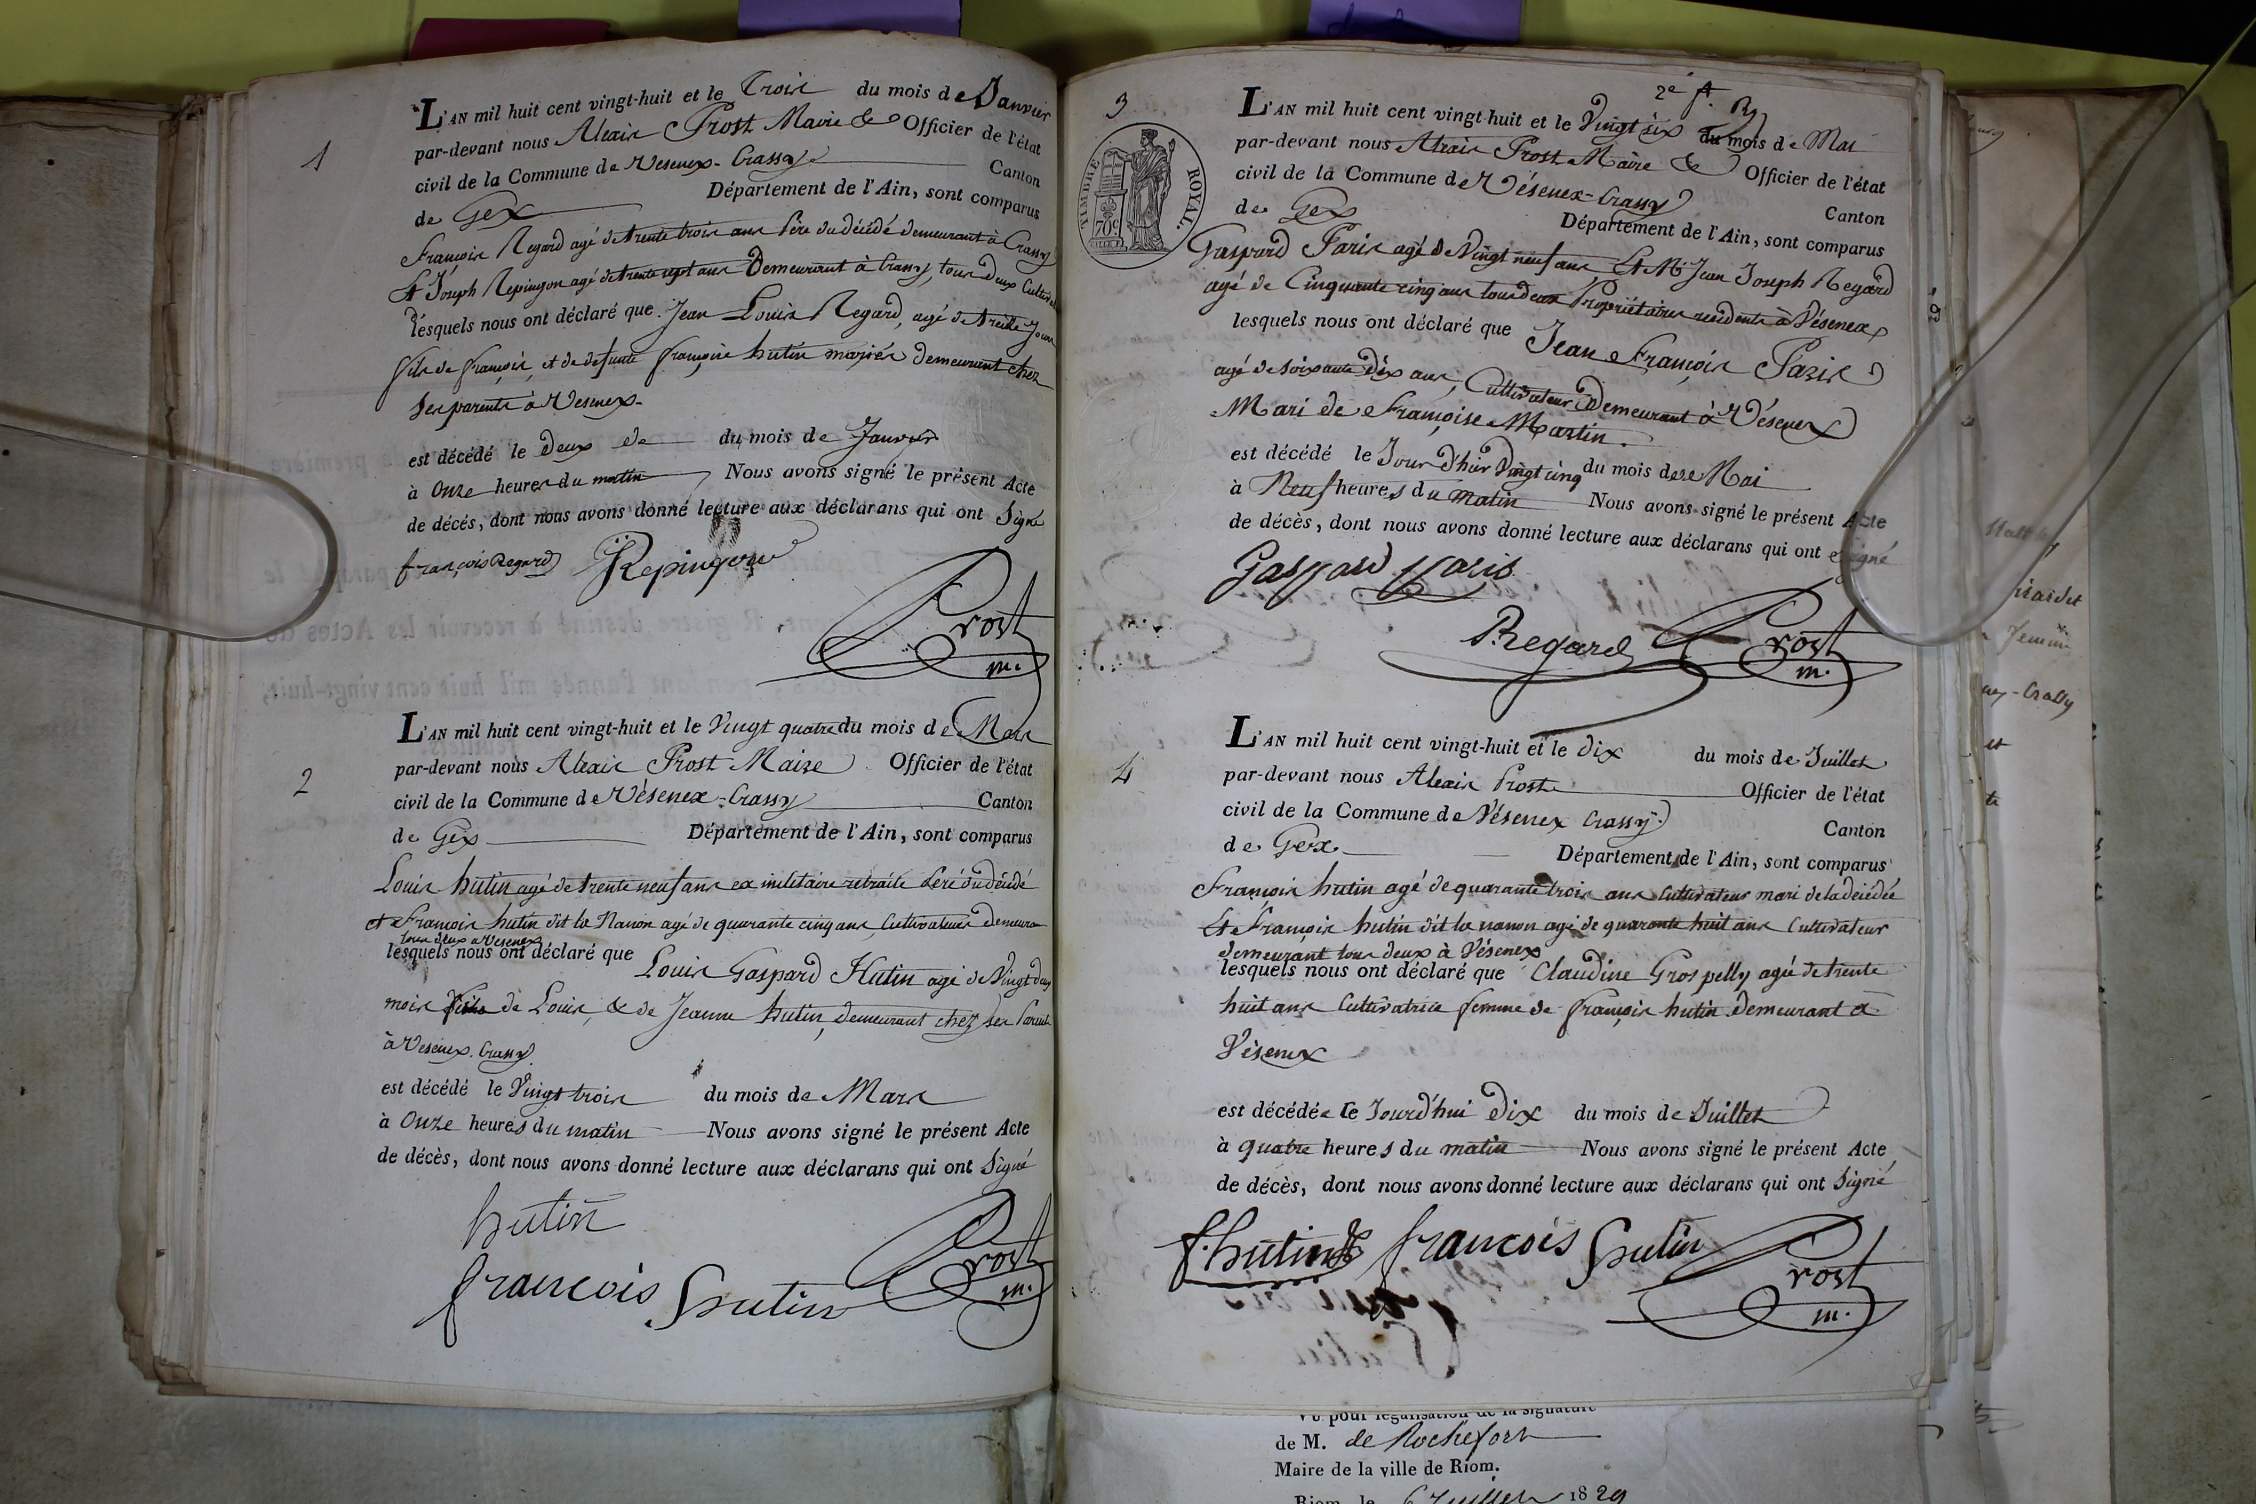 1
L'AN mil huit cent vingt-huit et le trois du mois de Janvier
par-devant nous Alexis Prost Maire & Officier de l'état
civil de la Commune de Vesenex-Crassy Canton
de Gex Département de l'Ain, sont comparus
François Regard agé de trente trois ans Père du décédé demeurant à Crassy
Et Joseph Repingon agé de trente sept ans Demeurant à Crassy, tous deux Cultiv
lesquels nous ont déclaré que Jean Louis Regard, agé de treize Jours
fils de François, et de defunte françoise hutin mariés demeurant chez
ses parents à Vesenex.
est décédé le Deux de du mois de Janvier
à Onze heures du matin Nous avons signé le présent Acte
de décès, dont nous avons donné lecture aux déclarans qui ont Signé
françois Regard JRepingon
Prost
m.
2
L'AN mil huit cent vingt-huit et le Vingt quatre du mois de Mars
par-devant nous Alexis Prost Maire Officier de l'état
civil de la Commune de Vésenex-Crassy Canton
de Gex Département de l'Ain, sont comparus
Louis hutin agé de trente neuf ans ex militaire retraité Peré du décédé
et François hutin dit la Nanon agé de quarante cinq ans, Cultivateurs demeuran
tous deux a Vesenex
lesquels nous ont déclaré que Louis Gaspard Hutin agé de Vingt deux
mois fils de Louis, & de Jeanne hutin, demeurant chez ses Parents
à Vesenex. Crassy.
est décédé le Vingt trois du mois de Mars
à Onze heures du matin Nous avons signé le présent Acte
de décès, dont nous avons donné lecture aux déclarans qui ont Signé
hutin
francois hutin
Prost
m.
2e f.
3
TIMBRE ROYAL.
70c
L'AN mil huit cent vingt-huit et le Vingt six du mois de Mai
par-devant nous Alexis Prost Maire & Officier de l'état
civil de la Commune de Vésenex-Crassy Canton
de Gex Département de l'Ain, sont comparus
Gaspard Paris agé de Vingt neuf ans Et Mr Jean Joseph Regard
agé de Cinquante cinq ans tous deux Propriétaires residents à Vésenex
lesquels nous ont déclaré que Jean François Paris
agé de soixante Dix ans, Cultivateur Demeurant à Vésenex
Mari de Françoise Martin.
est décédé le Jour d'hier Vingt cinq du mois de Mai
à Neuf heures du matin Nous avons signé le présent Acte
de décès, dont nous avons donné lecture aux déclarans qui ont signé
Gaspard paris
Regard Prost
m.
4
L'AN mil huit cent vingt-huit et le dix du mois de Juillet
par-devant nous Alexis Prost Officier de l'état
civil de la Commune de Vésenex Crassy. Canton
de Gex Département de l'Ain, sont comparus
François hutin agé de quarante trois ans Cultivateur mari de la décédée
Et François hutin dit la nanon agé de quarante huit ans Cultivateur
demeurant tous deux à Vésenex
lesquels nous ont déclaré que Claudine Grospelly agée de trente
huit ans Cultivatrice femme de françois hutin demeurant a
Vésenex
est décédée le Jourd'hui dix du mois de Juillet
à quatre heures du matin Nous avons signé le présent Acte
de décès, dont nous avons donné lecture aux déclarans qui ont Signé
f. hutin francois hutin Prost
m.
Vu pour légalisation de la signature
de M. de Rochefort
Maire de la ville de Riom.
Riom, le 6 Juillet 1829